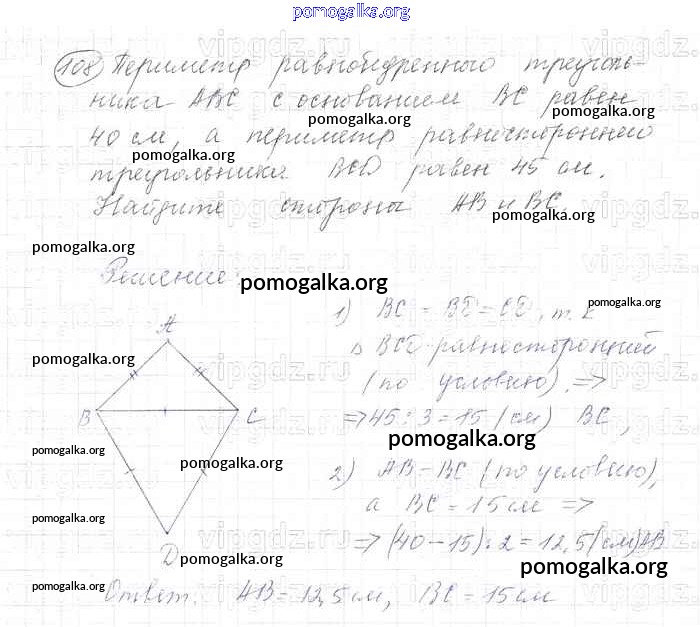 pomogalka.org
108 Периметр равнобедренного треуголь-
ника ABC с основанием BC равен
pomogalka.org pomogalka.org
40 см, а периметр равностороннего
pomogalka.org
треугольника BCD равен 45 см.
Найдите стороны AB и BC.
pomogalka.org
pomogalka.org
Решение:
pomogalka.org
1) BC = BD = CD, т.к
pomogalka.org
A
△ BCD-равносторонний
pomogalka.org
(по условию) =>
B C
=> 45 : 3 = 15 (см) BC,
pomogalka.org
pomogalka.org
pomogalka.org
2) AB = BC (по условию),
а BC = 15 см =>
pomogalka.org
=> (40 - 15) : 2 = 12,5 (см) AB
D
pomogalka.org
pomogalka.org
pomogalka.org
Ответ. AB = 12,5 см, BC = 15 см
vipgdz.ru